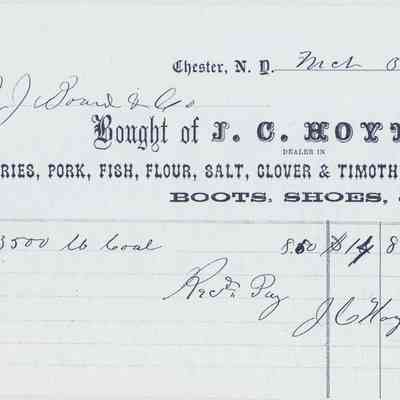 Chester, N. Y. Mch
J. Board & Co
Bought of J. C. HOYT
DEALER IN
RIES, PORK, FISH, FLOUR, SALT, CLOVER & TIMOTH
BOOTS, SHOES,
3500 lb Coal 8.50 $14 8
Rec'd Pay
J C Hoy